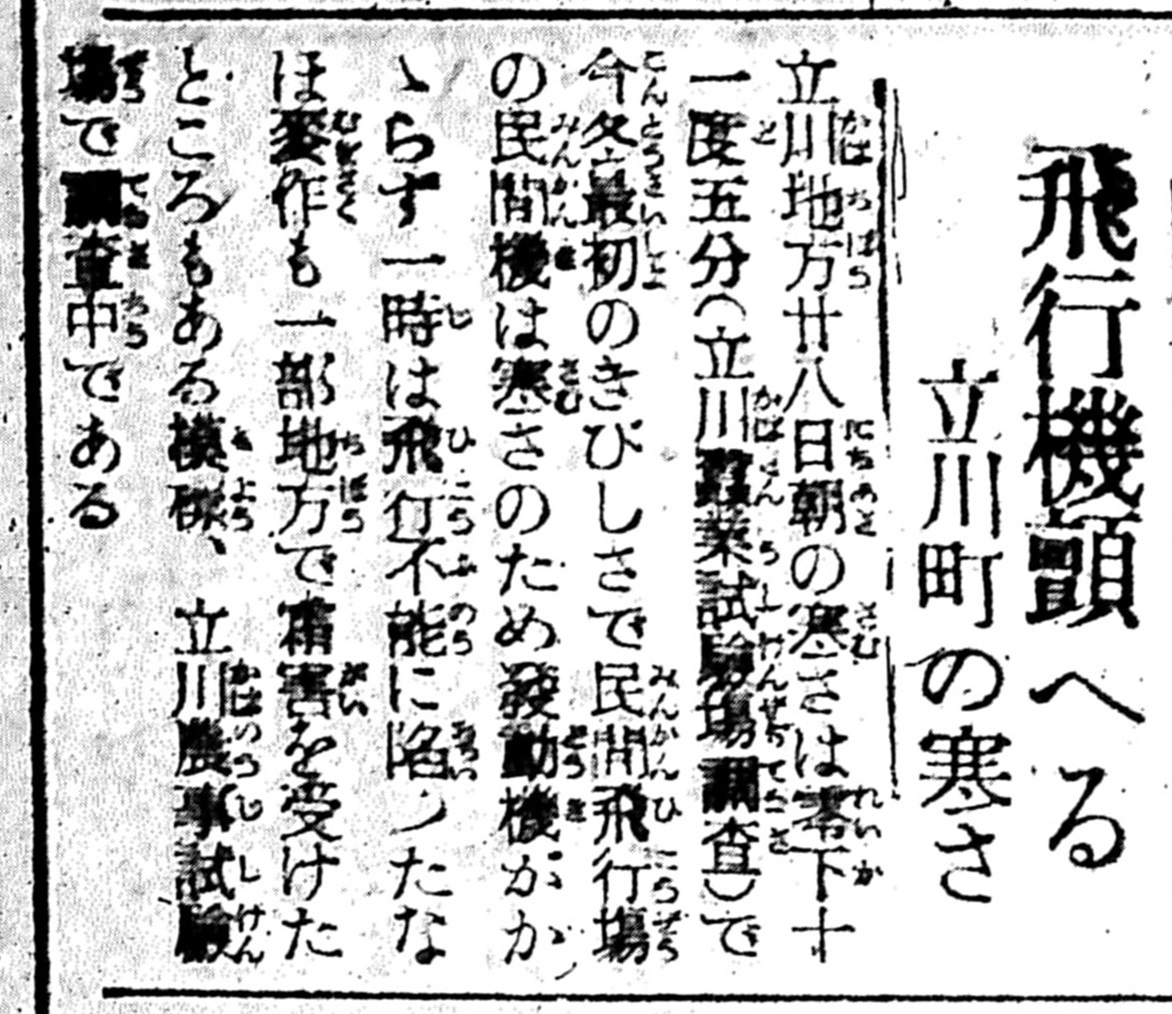 飛行機顫へる
立川町の寒さ
立川地方廿八日朝の寒さは零下十
一度五分(立川蠶業試驗場調査)で
今冬最初のきびしさで民間飛行場
の民間機は寒さのため發動機がか
ゝらず一時は飛行不能に陷つたな
ほ麥作も一部地方で霜害を受けた
ところもある模樣、立川農事試驗
場で調査中である